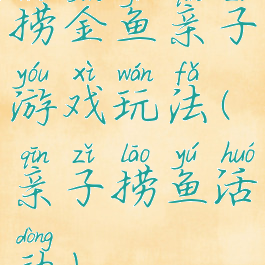 捞金鱼亲子
yóu xì wán fǎ
游戏玩法(
qīn zǐ lāo yú huó
亲子捞鱼活
dòng
动)